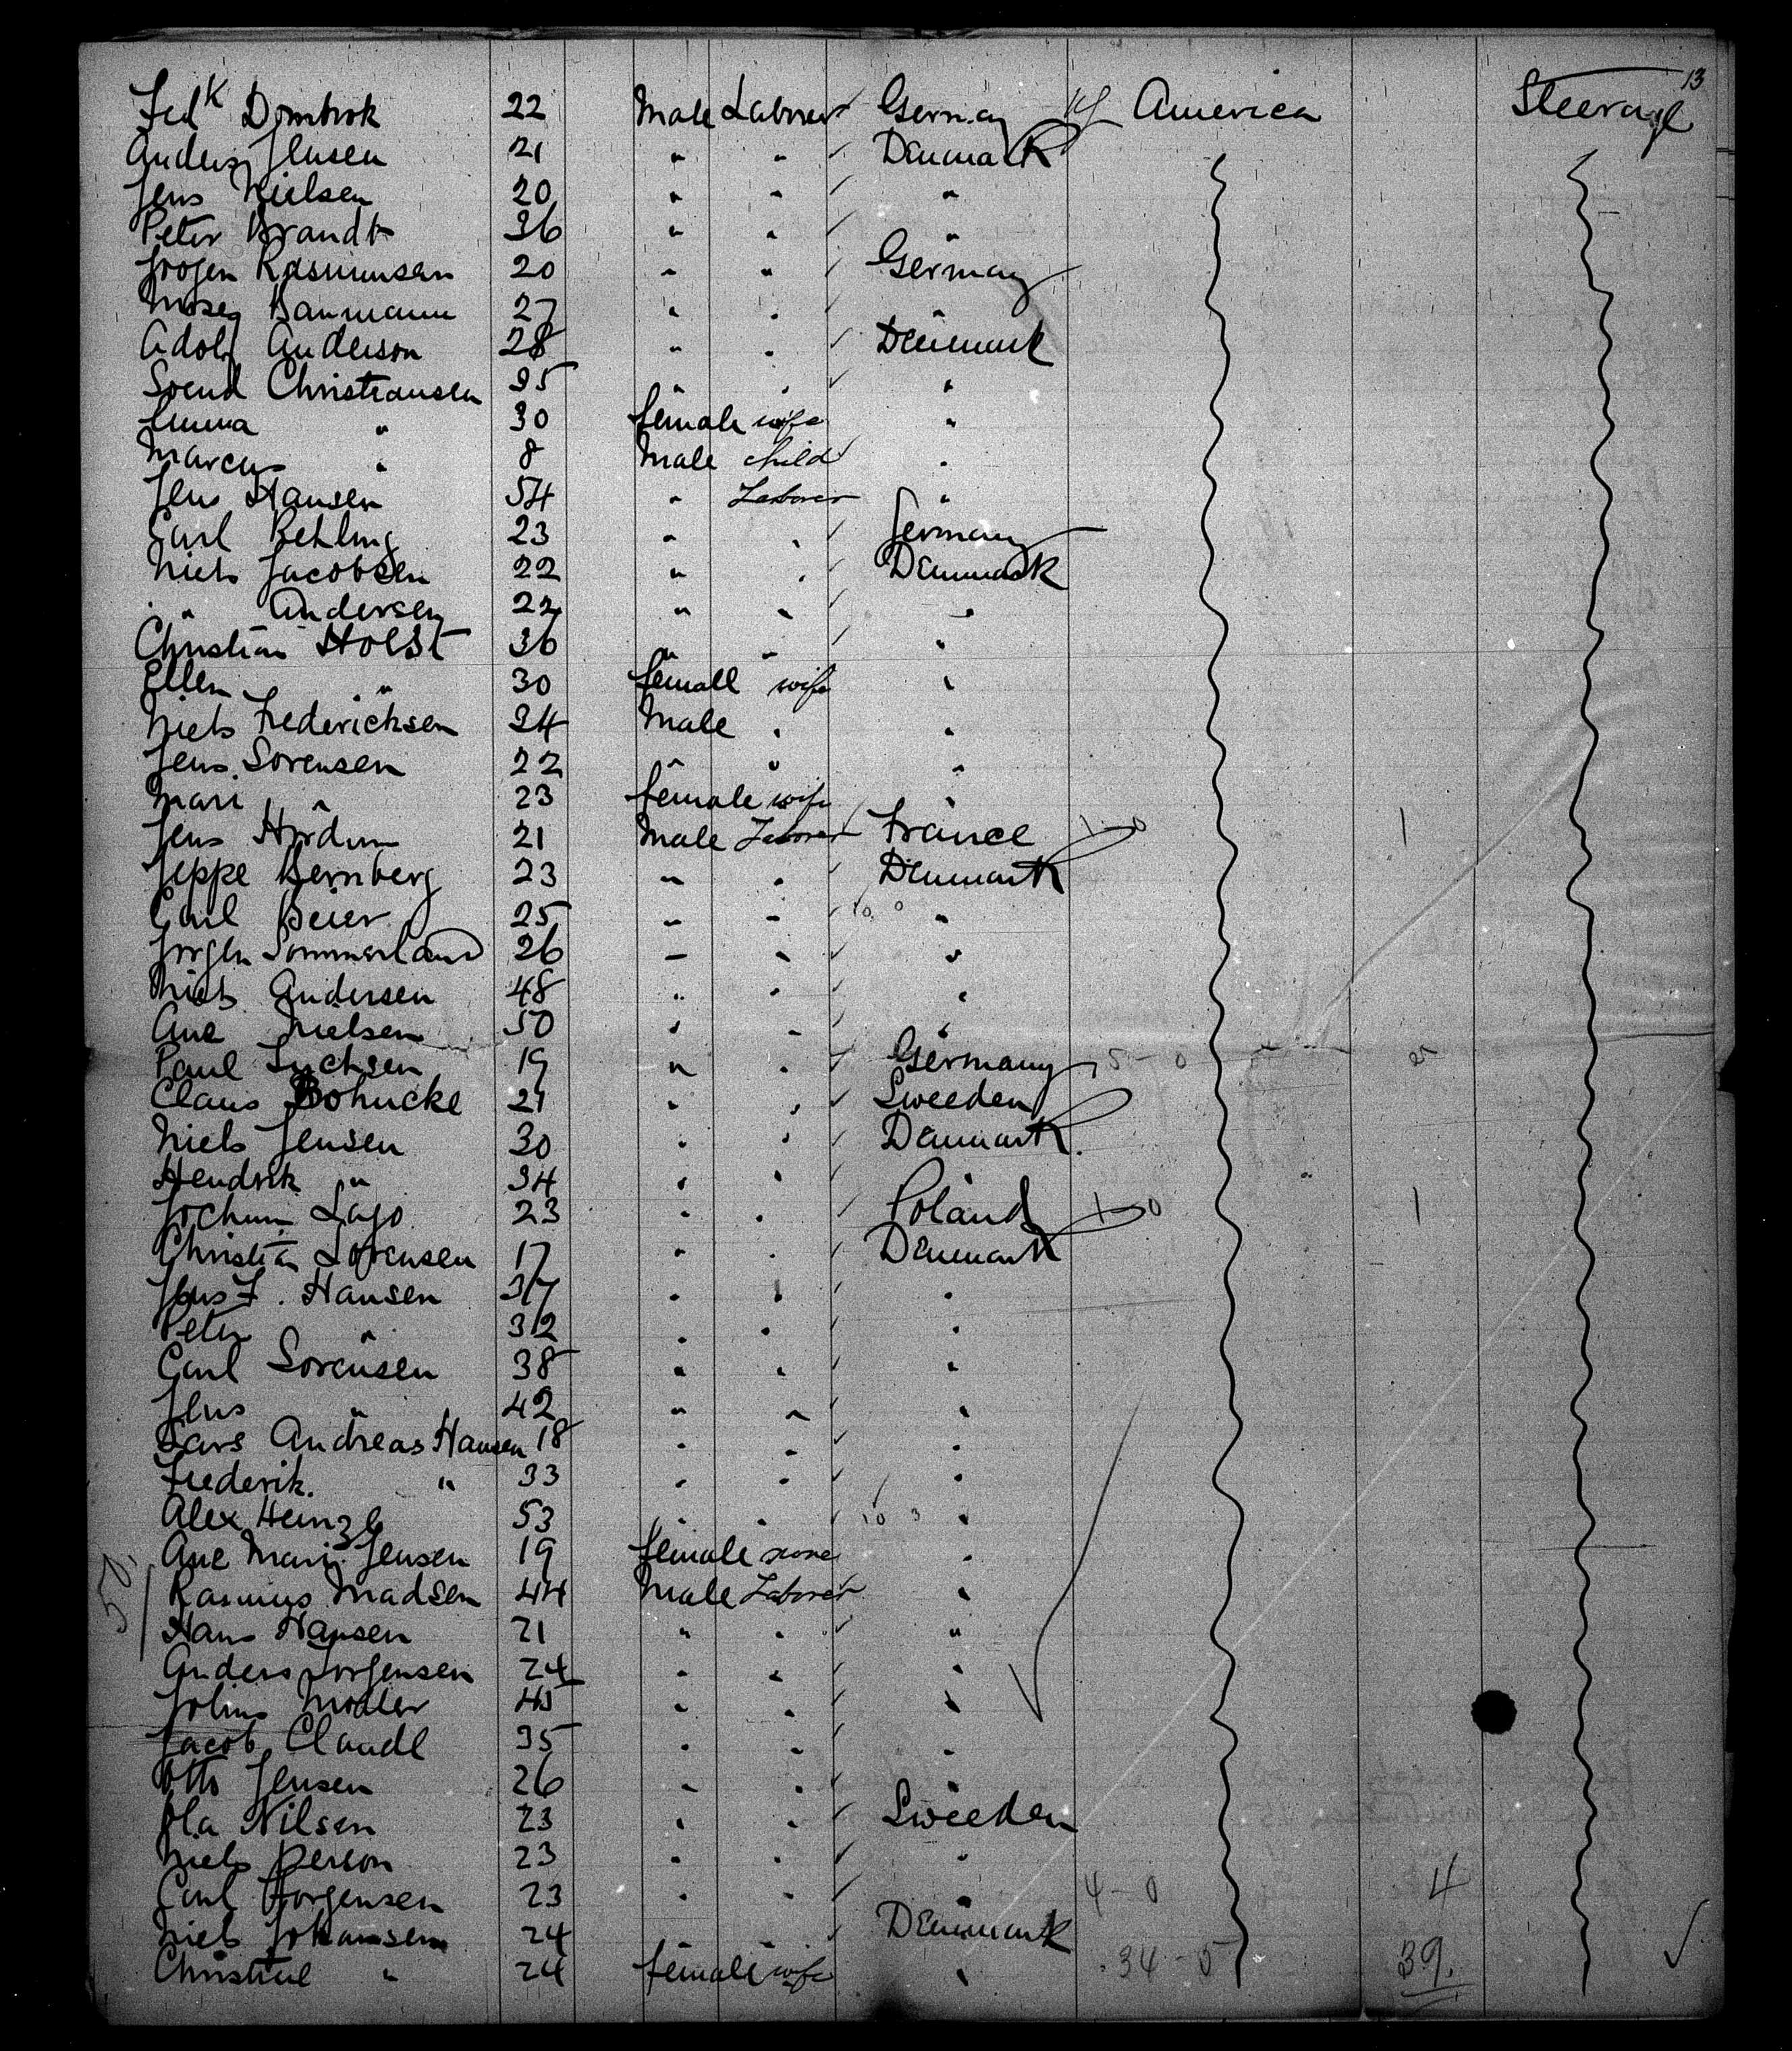 13
Fedk Dombrok 22 Male Laborer Germany America Steerage
Anders Jensen 21 " " Denmark
Jens Nielsen 20 " " "
Peter Brandt 36 " " "
Jrogen Rasmussen 20 " " Germany
Moses Baumann 27 " " "
Adolf Anderson 28 " " Denmark
Svend Christiansen 35 " " "
Emma " 30 female wife "
Marcus " 8 Male child "
Jens Hansen 54 " Laborer "
Carl Behling 23 " " Germany
Niels Jacobsen 22 " " Denmark
" Andersen 22 " " "
Christian Holst 36 " " "
Ellen " 30 female wife "
Niels Frederichsen 34 Male " "
Jens Sorensen 22 " " "
Mari " 23 female wife "
Jens Hordum 21 Male Laborer France 1-0 1
Jeppe Bernberg 23 " " Denmark
Carl Beier 25 " " "
Jorgen Sommerland 26 " " "
Niels Andersen 48 " " "
Ane Nielsen 50 " " "
Paul Luchsen 19 " " Germany 5-0
Claus Bohucke 21 " " Sweeden
Niels Jensen 30 " " Denmark
Hendrik " 34 " " "
Jochum Lajo 23 " " Poland 1-0 1
Christian Sorensen 17 " " Denmark
Jens F. Hansen 37 " " "
Peter " 32 " " "
Carl Sorensen 38 " " "
Jens " 42 " " "
Lars Andreas Hansen 18 " " "
Frederik. " 33 " " "
Alex Heinzle 53 " " "
Ane Marie Jensen 19 female none "
50 Rasmus Madsen 44 Male Laborer "
Hans Hansen 21 " " "
Anders Jorgensen 24 " " "
Johns Moller 45 " " "
Jacob Claudl 35 " " "
Otto Jensen 26 " " "
Ola Nilsen 23 " " Sweeden
Niels Person 23 " " "
Carl Horgensen 23 " " " 4-0 4
Niels Johansen 24 " " Denmark
Christine " 24 female wife " 34-5 39.